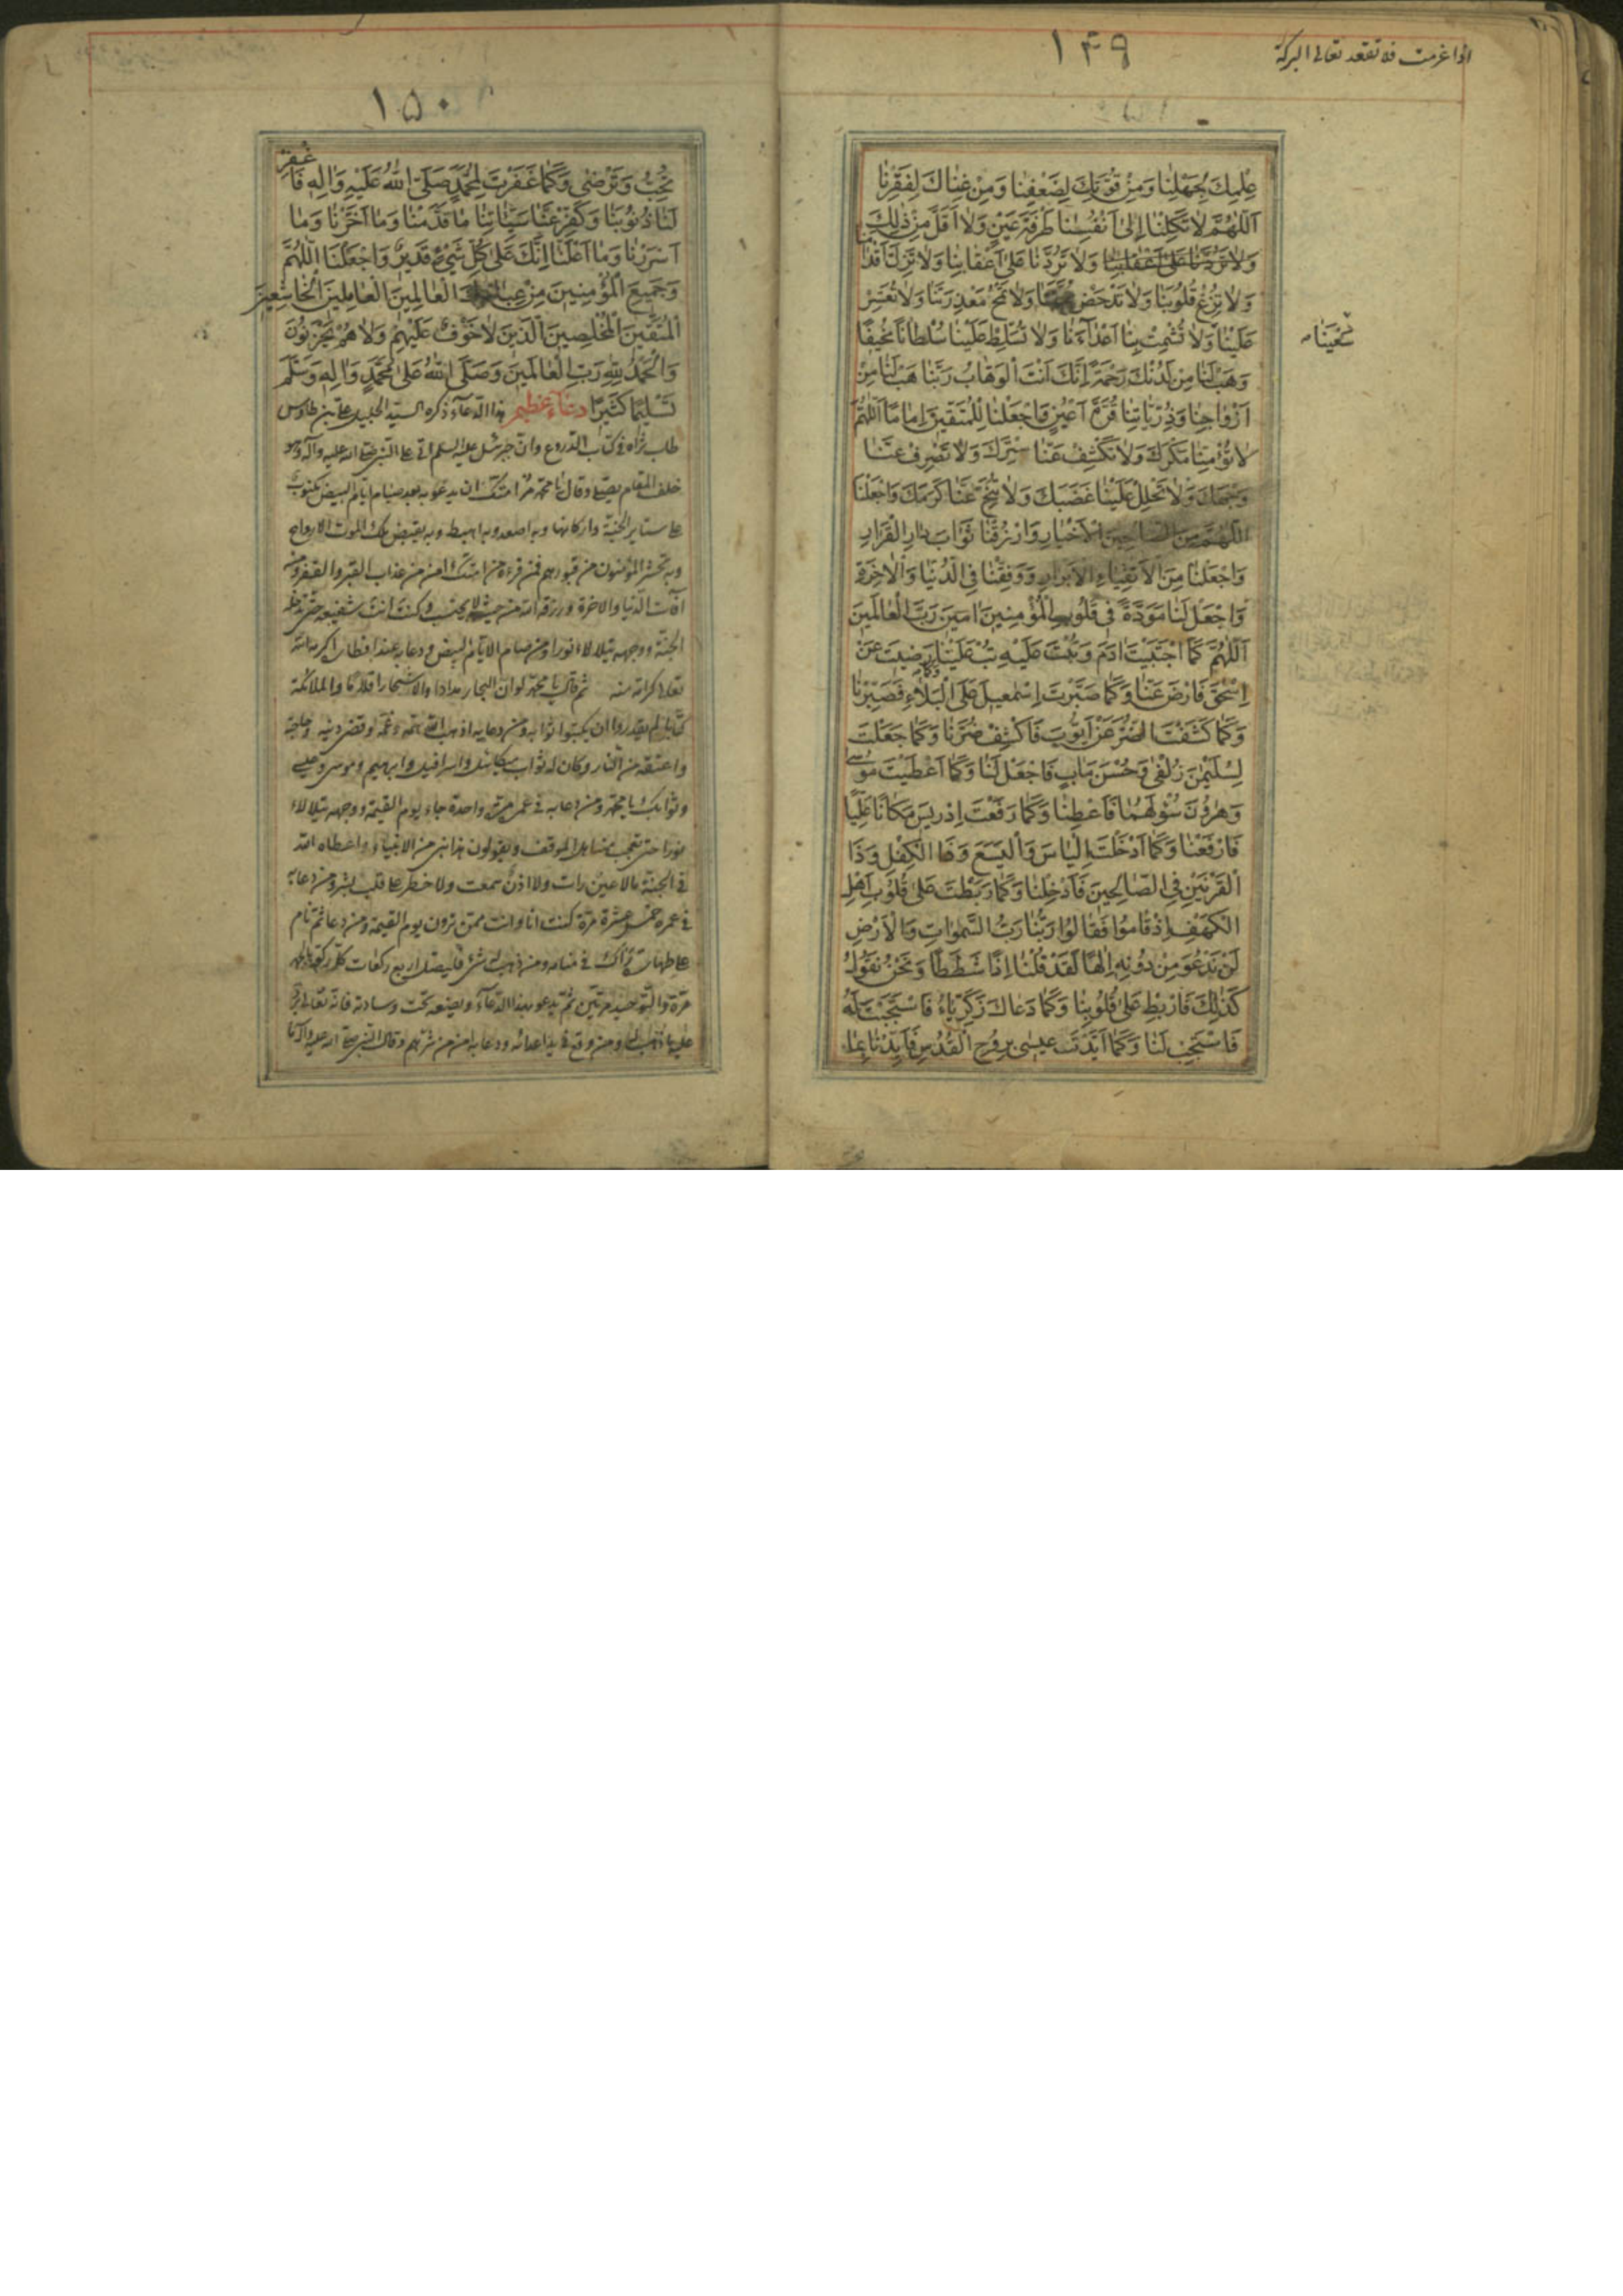 اذا عزمت فلا تقعد تعالی البرکة
١۴٩
عِلْمِكَ لِجَهْلِنَا وَمِنْ قُوَّتِكَ لِضَعْفِنَا وَمِنْ غِنَاكَ لِفَقْرِنَا
اَللّٰهُمَّ لَا تَكِلْنَا اِلٰى اَنْفُسِنَا طَرْفَةَ عَيْنٍ وَلَا اَقَلَّ مِنْ ذٰلِكَ
وَلَا تَرُدَّنَا عَلٰى اَعْقَابِنَا وَلَا تُزِلَّ اَقْدَامَنَا
وَلَا تُزِغْ قُلُوبَنَا وَلَا تُدْحِضْ وَلَا تَمْحُ مَعْذِرَتَنَا وَلَا تُعَسِّرْ
سَعْيَنَا
عَلَيْنَا وَلَا تُشْمِتْ بِنَا اَعْدَاءَنَا وَلَا تُسَلِّطْ عَلَيْنَا سُلْطَانًا مُخِيفًا
وَهَبْ لَنَا مِنْ لَدُنْكَ رَحْمَةً اِنَّكَ اَنْتَ الْوَهَّابُ رَبَّنَا هَبْ لَنَا مِنْ
اَزْوَاجِنَا وَذُرِّيَّاتِنَا قُرَّةَ اَعْيُنٍ وَاجْعَلْنَا لِلْمُتَّقِينَ اِمَامًا اَللّٰهُمَّ
لَا تُؤْمِنَّا مَكْرَكَ وَلَا تَكْشِفْ عَنَّا سِتْرَكَ وَلَا تَصْرِفْ عَنَّا
وَجْهَكَ وَلَا تُحْلِلْ عَلَيْنَا غَضَبَكَ وَلَا تُنَحِّ عَنَّا كَرَمَكَ وَاجْعَلْنَا
اللّٰهُمَّ مِنَ الصَّالِحِينَ الْاَخْيَارِ وَارْزُقْنَا ثَوَابَ دَارِ الْقَرَارِ
وَاجْعَلْنَا مِنَ الْاَتْقِيَاءِ الْاَبْرَارِ وَوَفِّقْنَا فِي الدُّنْيَا وَالْاٰخِرَةِ
وَاجْعَلْ لَنَا مَوَدَّةً فِي قُلُوبِ الْمُؤْمِنِينَ اٰمِينَ رَبَّ الْعَالَمِينَ
اَللّٰهُمَّ كَمَا اجْتَبَيْتَ اٰدَمَ وَتُبْتَ عَلَيْهِ تُبْ عَلَيْنَا وَكَمَا رَضِيتَ عَنْ
اِسْحٰقَ فَارْضَ عَنَّا وَكَمَا صَبَّرْتَ اِسْمٰعِيلَ عَلَى الْبَلَاءِ فَصَبِّرْنَا
وَكَمَا كَشَفْتَ الضُّرَّ عَنْ اَيُّوبَ فَاكْشِفْ ضُرَّنَا وَكَمَا جَعَلْتَ
لِسُلَيْمٰنَ زُلْفٰى وَحُسْنَ مَاٰبٍ فَاجْعَلْ لَنَا وَكَمَا اَعْطَيْتَ مُوسٰى
وَهٰرُونَ سُؤْلَهُمَا فَاَعْطِنَا وَكَمَا رَفَعْتَ اِدْرِيسَ مَكَانًا عَلِيًّا
فَارْفَعْنَا وَكَمَا اَدْخَلْتَ اِلْيَاسَ وَالْيَسَعَ وَذَا الْكِفْلِ وَذَا
الْقَرْنَيْنِ فِي الصَّالِحِينَ فَاَدْخِلْنَا وَكَمَا رَبَطْتَ عَلٰى قُلُوبِ اَهْلِ
الْكَهْفِ اِذْ قَامُوا فَقَالُوا رَبُّنَا رَبُّ السَّمٰوَاتِ وَالْاَرْضِ
لَنْ نَدْعُوَ مِنْ دُونِهِ اِلٰهًا لَقَدْ قُلْنَا اِذًا شَطَطًا وَنَحْنُ نَقُولُ
كَذٰلِكَ فَارْبِطْ عَلٰى قُلُوبِنَا وَكَمَا دَعَاكَ زَكَرِيَّاءُ فَاسْتَجَبْتَ لَهُ
فَاسْتَجِبْ لَنَا وَكَمَا اَيَّدْتَ عِيسٰى بِرُوحِ الْقُدُسِ فَاَيِّدْنَا بِمَا
١۵٠
تُحِبُّ وَتَرْضٰى وَكَمَا غَفَرْتَ لِمُحَمَّدٍ صَلَّى اللّٰهُ عَلَيْهِ وَاٰلِهِ فَاغْفِرْ
لَنَا ذُنُوبَنَا وَكَفِّرْ عَنَّا سَيِّئَاتِنَا مَا قَدَّمْنَا وَمَا اَخَّرْنَا وَمَا
اَسْرَرْنَا وَمَا اَعْلَنَّا اِنَّكَ عَلٰى كُلِّ شَيْءٍ قَدِيرٌ وَاجْعَلْنَا اللّٰهُمَّ
وَجَمِيعَ الْمُؤْمِنِينَ مِنْ عِبَادِكَ الْعَالِمِينَ الْعَامِلِينَ الْخَاشِعِينَ
الْمُتَّقِينَ الْمُخْلِصِينَ الَّذِينَ لَا خَوْفٌ عَلَيْهِمْ وَلَا هُمْ يَحْزَنُونَ
وَالْحَمْدُ لِلّٰهِ رَبِّ الْعَالَمِينَ وَصَلَّى اللّٰهُ عَلٰى مُحَمَّدٍ وَاٰلِهِ وَسَلَّمَ
تَسْلِيمًا كَثِيرًا دعاء عظيم هذا الدعاء ذكره السيد الجليل علي بن طاوس
طاب ثراه في كتاب الدروع وان جبرئيل عليه السلم اتى على النبي صلى الله عليه وآله وهو
خلف المقام يصلي وقال يا محمد مر امتك ان يدعو به بعد صيام ايام البيض مكتوب
على ستاير الجنة واركانها وبه اصعد وبه اهبط وبه يقبض ملك الموت الارواح
وبه تحشر المؤمنون من قبورهم فمن قرءه من امتك امن من عذاب القبر و
آفات الدنيا والاخرة ورزقه الله من حيث لا يحتسب وكنت انت شفيعه حتى تدخله
الجنة ووجهه يتلالاء نورا ومن صام الايام البيض ودعا به عند افطاره اكرمه الله
تعالى ثم قال يا محمد لو ان البحار مدادا والاشجار اقلاما والملائكة
كتابا لم يقدروا ان يكتبوا ثوابه ومن دعا به اذهب الله همه وغمه وقضى دينه
واعتقه من النار وكان له ثواب ميكائيل واسرافيل وابرهيم وموسى وعيسى
وثوابك يا محمد ومن دعا به في عمره مرة واحدة جاء يوم القيمة ووجهه يتلالاء
نورا حتى تعجب منه اهل الموقف ويقولون هذا نبي من الانبياء واعطاه الله
في الجنة مالا عين رات ولا اذن سمعت ولا خطر على قلب بشر ومن دعا به
في عمره خمس عشرة مرة كنت انا وانت ممن تزوره يوم القيمة ومن دعا ثم نام
على طهارة رآك في منامه ومن ذهب له شئ فليصل اربع ركعات كل ركعة بالحمد
مرة والتوحيد مرتين ثم يدعو بهذا الدعاء ويضعه تحت وسادته فانه تعالى يرد
عليه ما ذهب له ومن وقع في يد اعدائه ودعا به امن من شرهم وقال النبي صلى الله عليه وآله